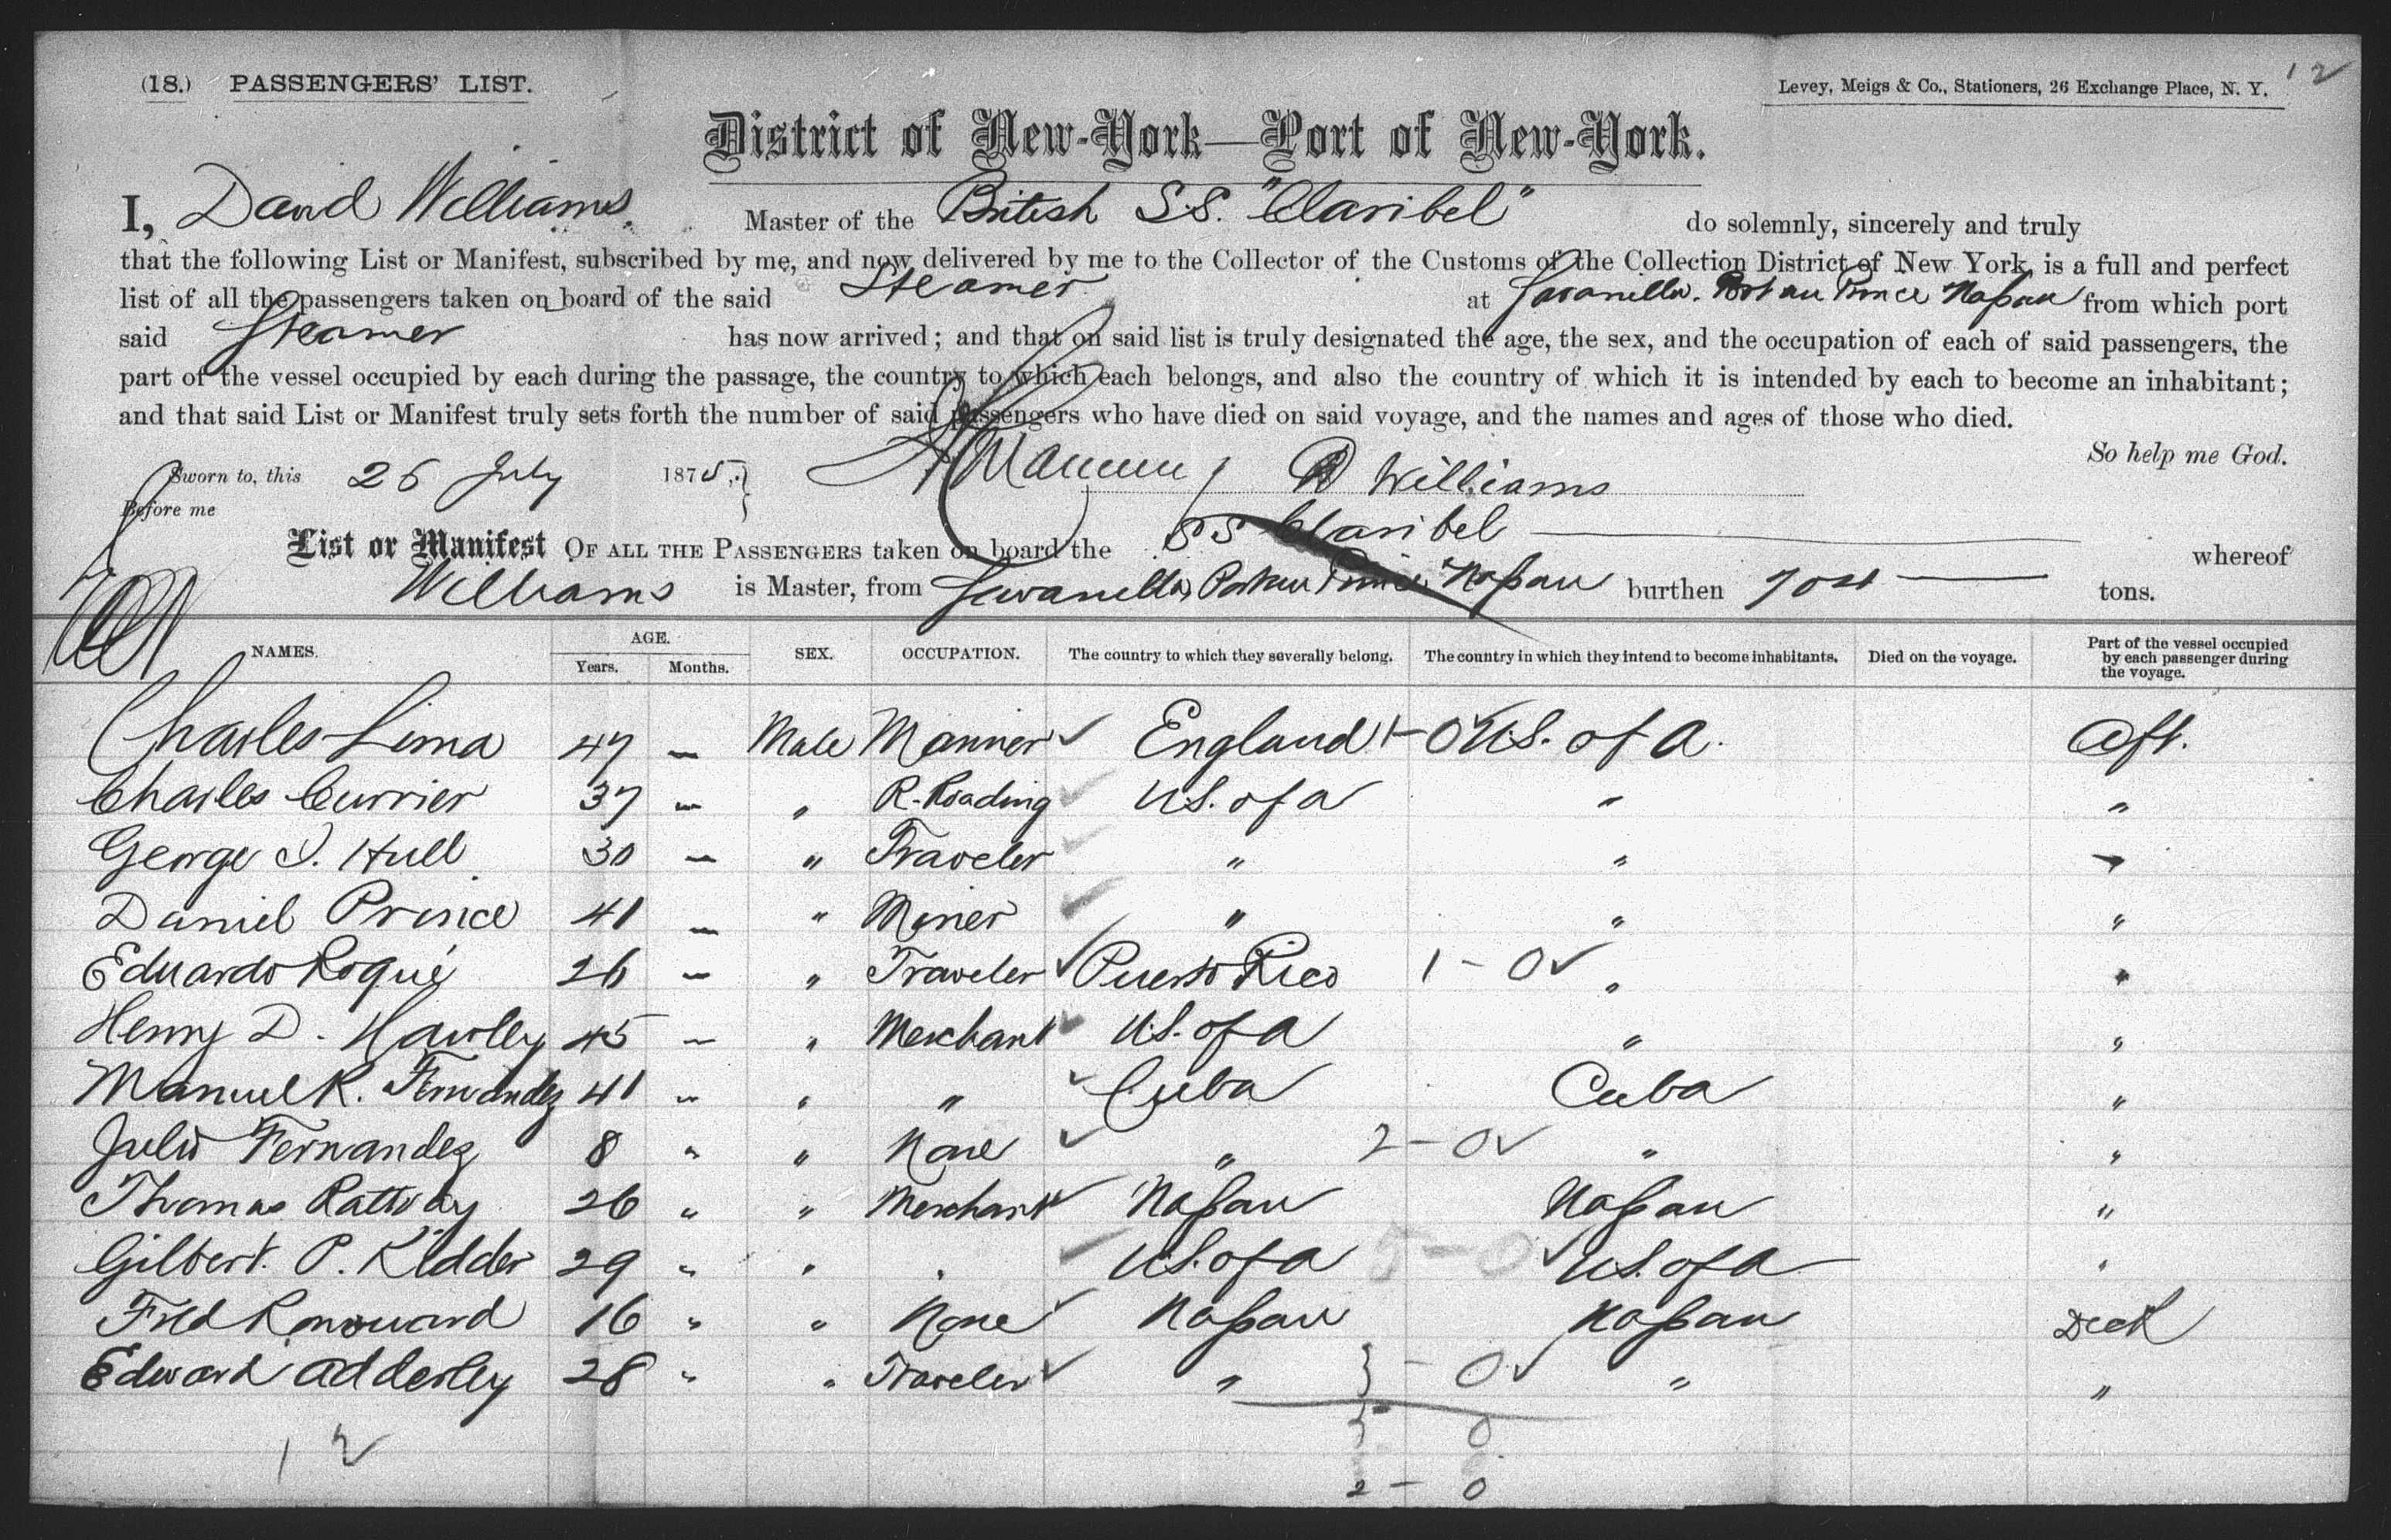 (18.) PASSENGERS' LIST.
Levey, Meigs & Co., Stationers, 26 Exchange Place, N. Y. 12
District of New-York—Port of New-York.
I, David Williams Master of the British S.S. "Claribel" do solemnly, sincerely and truly
that the following List or Manifest, subscribed by me, and now delivered by me to the Collector of the Customs of the Collection District of New York, is a full and perfect
list of all the passengers taken on board of the said Steamer at Savanilla. Port au Prince Naſsau from which port
said Steamer has now arrived; and that on said list is truly designated the age, the sex, and the occupation of each of said passengers, the
part of the vessel occupied by each during the passage, the country to which each belongs, and also the country of which it is intended by each to become an inhabitant;
and that said List or Manifest truly sets forth the number of said passengers who have died on said voyage, and the names and ages of those who died.
So help me God.
Sworn to, this 26 July 1875. D Williams
Before me
List or Manifest OF ALL THE PASSENGERS taken on board the SS Claribel whereof
Williams is Master, from Savanilla, Port au Prince Naſsau burthen tons.
NAMES. AGE. Years. Months. SEX. OCCUPATION. The country to which they severally belong. The country in which they intend to become inhabitants. Died on the voyage. Part of the vessel occupied by each passenger during the voyage.
Charles Lima 47 – Male Mariner ✓ England 1-0 ✓ U.S. of A. Aft.
Charles Currier 37 – " R-Roading ✓ U.S. of A " "
George S. Hull 30 – " Traveler ✓ " " "
Daniel Prince 41 – " Miner ✓ " " "
Eduardo Roqué 26 – " Traveler ✓ Puerto Rico 1-0 ✓ " "
Henry D. Hawley 45 – " Merchant ✓ U.S. of A " "
Manuel R. Fernandez 41 " " " ✓ Cuba Cuba "
Julio Fernandez 8 " " None ✓ " 2-0 ✓ " "
Thomas Rattray 26 " " Merchant ✓ Naſsau Naſsau "
Gilbert P. Kidder 29 " " " ✓ U.S. of A 5-0 ✓ U.S. of A "
Fred 16 " " None ✓ Naſsau Naſsau Deck
Edward Adderley 28 " " Traveler ✓ " 3-0 ✓ " "
12
3 0
2-0